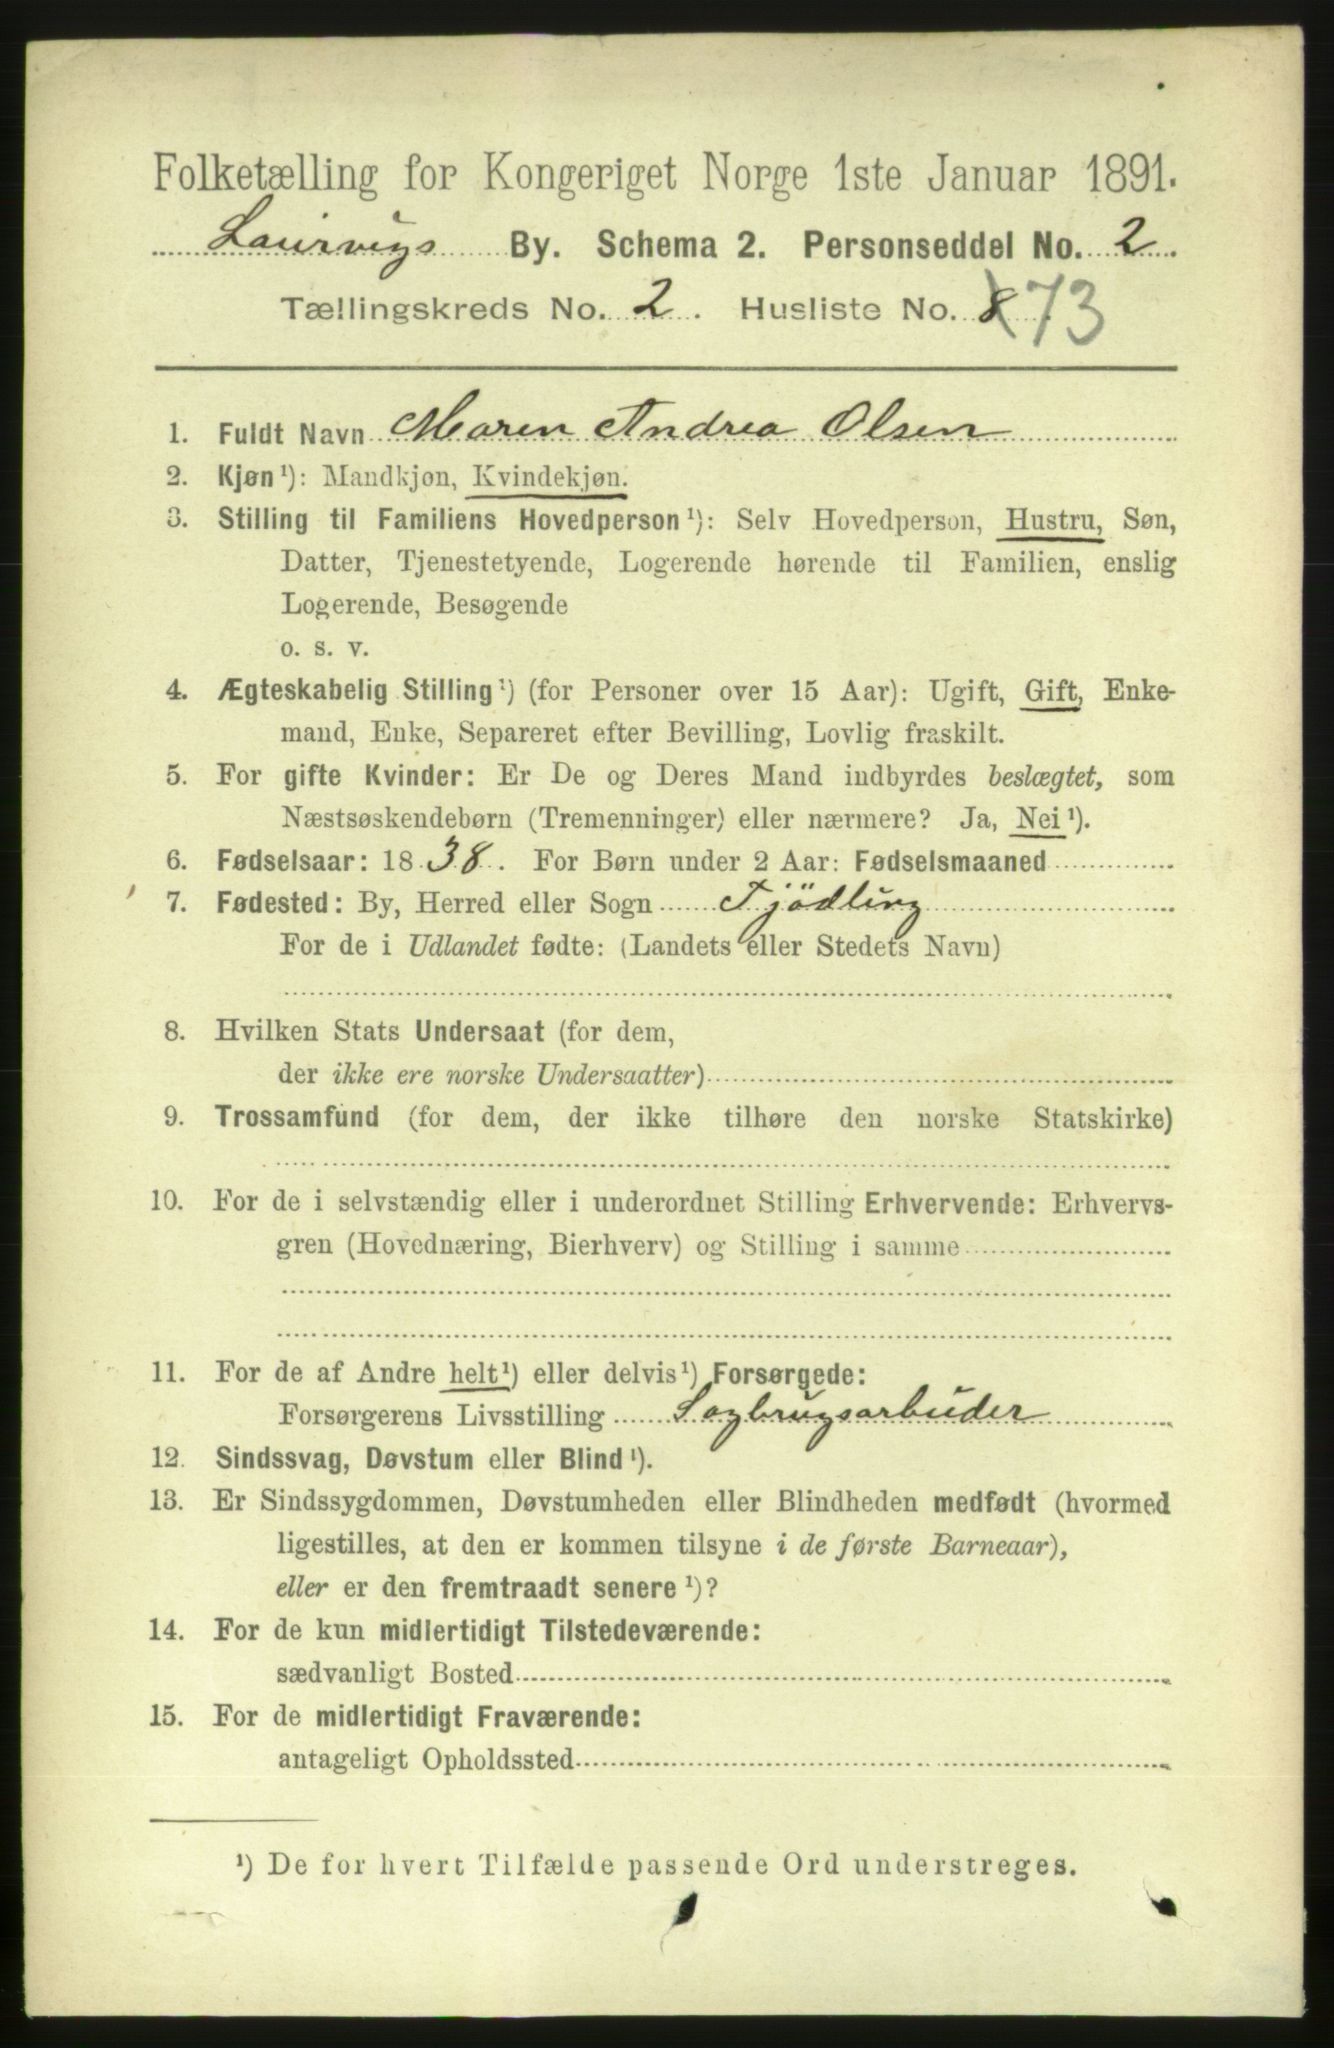 Folketælling for Kongeriget Norge 1ste Januar 1891.
Laurvigs By. Schema 2. Personseddel No. 2
Tællingskreds No. 2. Husliste No. 8 73
1. Fuldt Navn Maren Andrea Olsen
2. Kjøn¹): Mandkjøn, Kvindekjøn.
3. Stilling til Familiens Hovedperson¹): Selv Hovedperson, Hustru, Søn,
Datter, Tjenestetyende, Logerende hørende til Familien, enslig
Logerende, Besøgende
o. s. v.
4. Ægteskabelig Stilling¹) (for Personer over 15 Aar): Ugift, Gift, Enke-
mand, Enke, Separeret efter Bevilling, Lovlig fraskilt.
5. For gifte Kvinder: Er De og Deres Mand indbyrdes beslægtet, som
Næstsøskendebørn (Tremenninger) eller nærmere? Ja, Nei¹).
6. Fødselsaar: 1838. For Børn under 2 Aar: Fødselsmaaned
7. Fødested: By, Herred eller Sogn Tjödling
For de i Udlandet fødte: (Landets eller Stedets Navn)
8. Hvilken Stats Undersaat (for dem,
der ikke ere norske Undersaatter)
9. Trossamfund (for dem, der ikke tilhøre den norske Statskirke)
10. For de i selvstændig eller i underordnet Stilling Erhvervende: Erhvervs-
gren (Hovednæring, Bierhverv) og Stilling i samme
11. For de af Andre helt¹) eller delvis¹) Forsørgede:
Forsørgerens Livsstilling Sagbrugsarbeider
12. Sindssvag, Døvstum eller Blind¹).
13. Er Sindssygdommen, Døvstumheden eller Blindheden medfødt (hvormed
ligestilles, at den er kommen tilsyne i de første Barneaar),
eller er den fremtraadt senere¹)?
14. For de kun midlertidigt Tilstedeværende:
sædvanligt Bosted
15. For de midlertidigt Fraværende:
antageligt Opholdssted
¹) De for hvert Tilfælde passende Ord understreges.